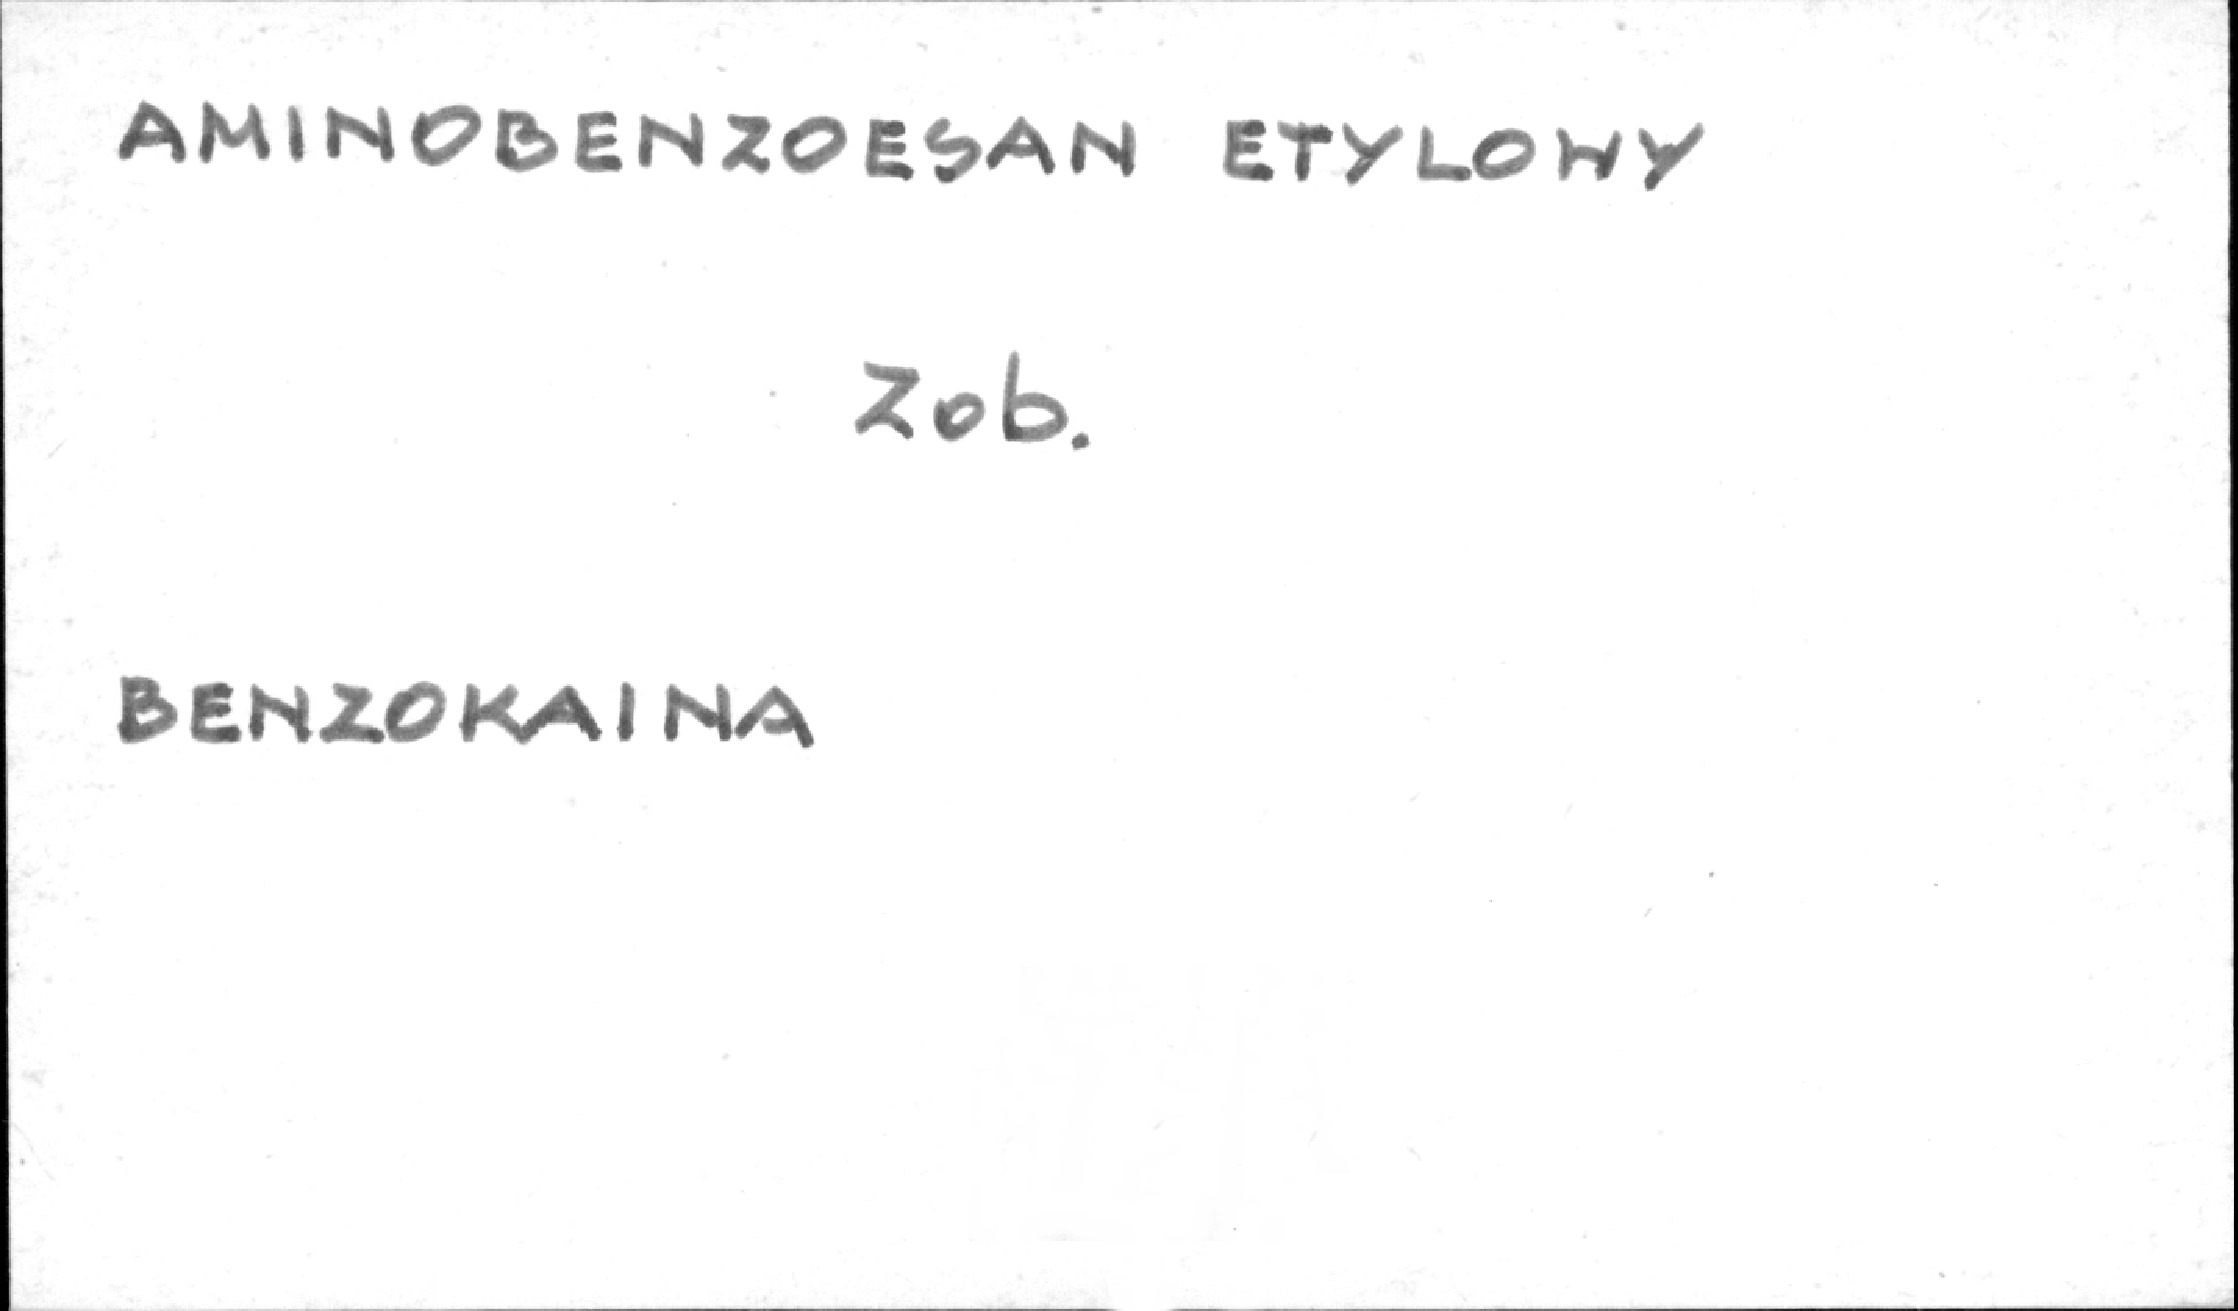 AMINOBENZOESAN ETYLOWY
Zob.
BENZOKAINA